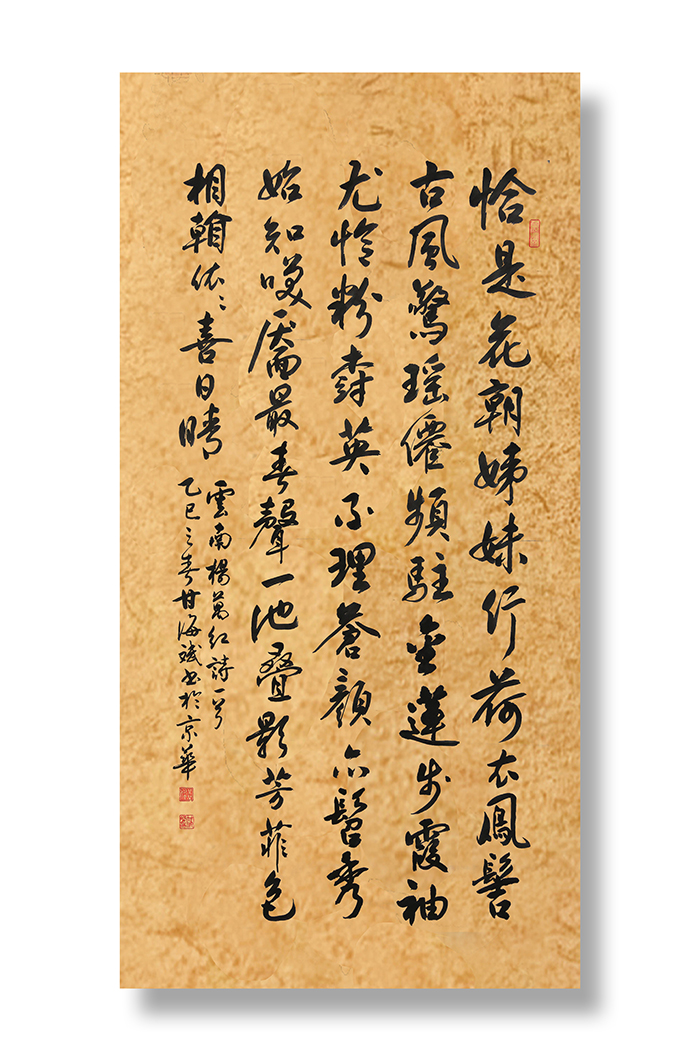 恰是花朝姊妹行荷衣鳳髻
古風驚瑶僊頻駐金蓮步霞袖
尤憐粉英不理蒼顔亦髫秀
始知靨最春聲一池疊影芳菲色
相依〻喜日晴
雲南楊萬紅詩一首
乙巳之春甘海斌書於京華